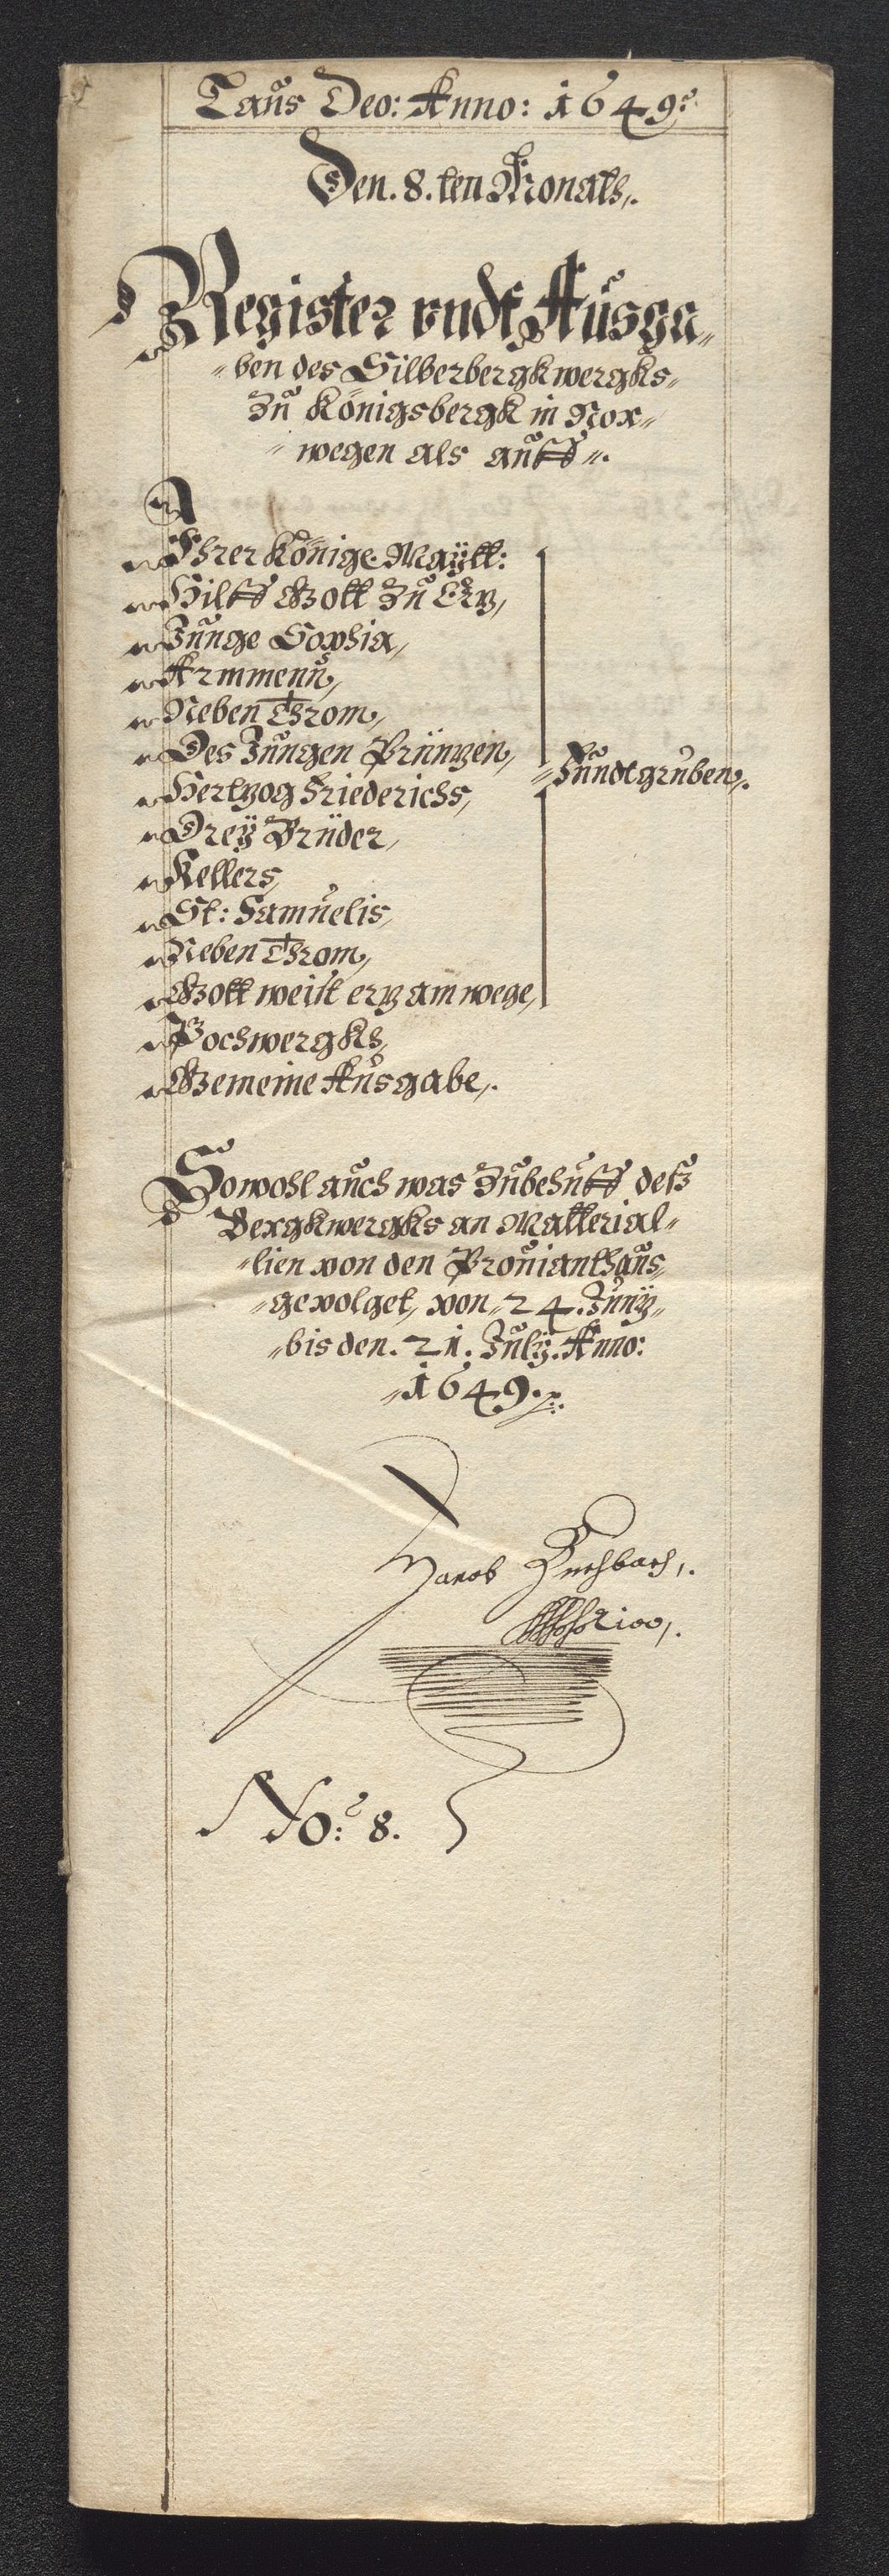 Laus Deo: Anno: 1649:
Den. 8.ten Monats,.
Register vndt Ausga„
„ben des Silberbergkwergks„
Zu Königsbergk in Nor„
„wegen als auff„.
Ihrer Königs Maÿtt:
Hilff Gott Zu Ertz,
Junge Sophia,
Armmenn,
Neben Throm,
Des Jungen Printzen,
Hertzog Friederichs,
„Fundtgruben,.
Dreÿ Brüder,
Kellers,
St: Samuelis,
Neben Throm,
Gott weist ertz am wege,
Pochwergks,
Gemeine Ausgabe,.
Sowohl auch was Zubehuff deß
Bergkwergks an Matterial„
„lien von den Prouianthaus,
„gevolget, von„ 24. Junÿ„
„bis den. 21. Julÿ. Anno:
„1649.
Jacob
No: 8.